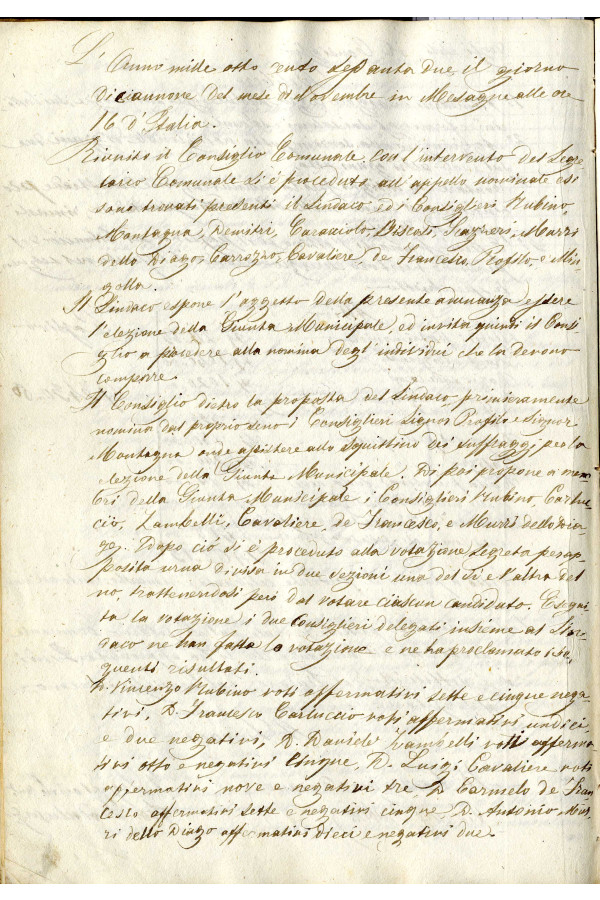 L'Anno mille otto cento sessanta due il giorno
diciannove del mese di Novembre in Mesagne alle ore
16 d'Italia.
Riunito il Consiglio Comunale, con l'intervento del Segre
tario Comunale si è proceduto all'appello nominale e si
sono trovati presenti il Sindaco ed i Consiglieri Rubino,
Montagna, Demitri, Caracciolo, Discosti, Murri
dello Diago, Carrozzo, Cavaliere, de Francesco, Profilo, e Min
golla.
Il Sindaco espone l'oggetto della presente adunanza essere
l'elezione della Giunta Municipale, ed invita quindi il Consi
glio a procedere alla nomina degl'individui che la devono
comporre.
Il Consiglio dietro la proposta del Sindaco, primieramente
nomina dal proprio seno i Consiglieri Signor Profilo e Signor
Montagna onde assistere allo squittino dei suffraggi per la
elezione della Giunta Municipale. Di poi propone a mem
bri della Giunta Municipale i Consiglieri Rubino, Carluc
cio, Zambelli, Cavaliere, de Francesco, e Murri dello Dia
go. Dopo ciò si è proceduto alla votazione segreta per ap
posita urna divisa in due sezioni una del sì e l'altra del
no, trattenendosi però dal votare ciascun candidato. Esegui
ta la votazione i due Consiglieri delegati insieme al Sin
daco ne han fatta la votazione e ne ha proclamato i se
guenti risultati.
D. Vincenzo Rubino voti affermativi sette e cinque nega
tivi, D. Francesco Carluccio voti affermativi undici
e due negativi, D. Daniele Zambelli voti afferma
tivi otto e negativi cinque, D. Luigi Cavaliere voti
affermativi nove e negativi tre, D. Carmelo de Fran
cesco affermativi sette e negativi cinque, D. Antonio Mur
ri dello Diago affermativi dieci e negativi due.